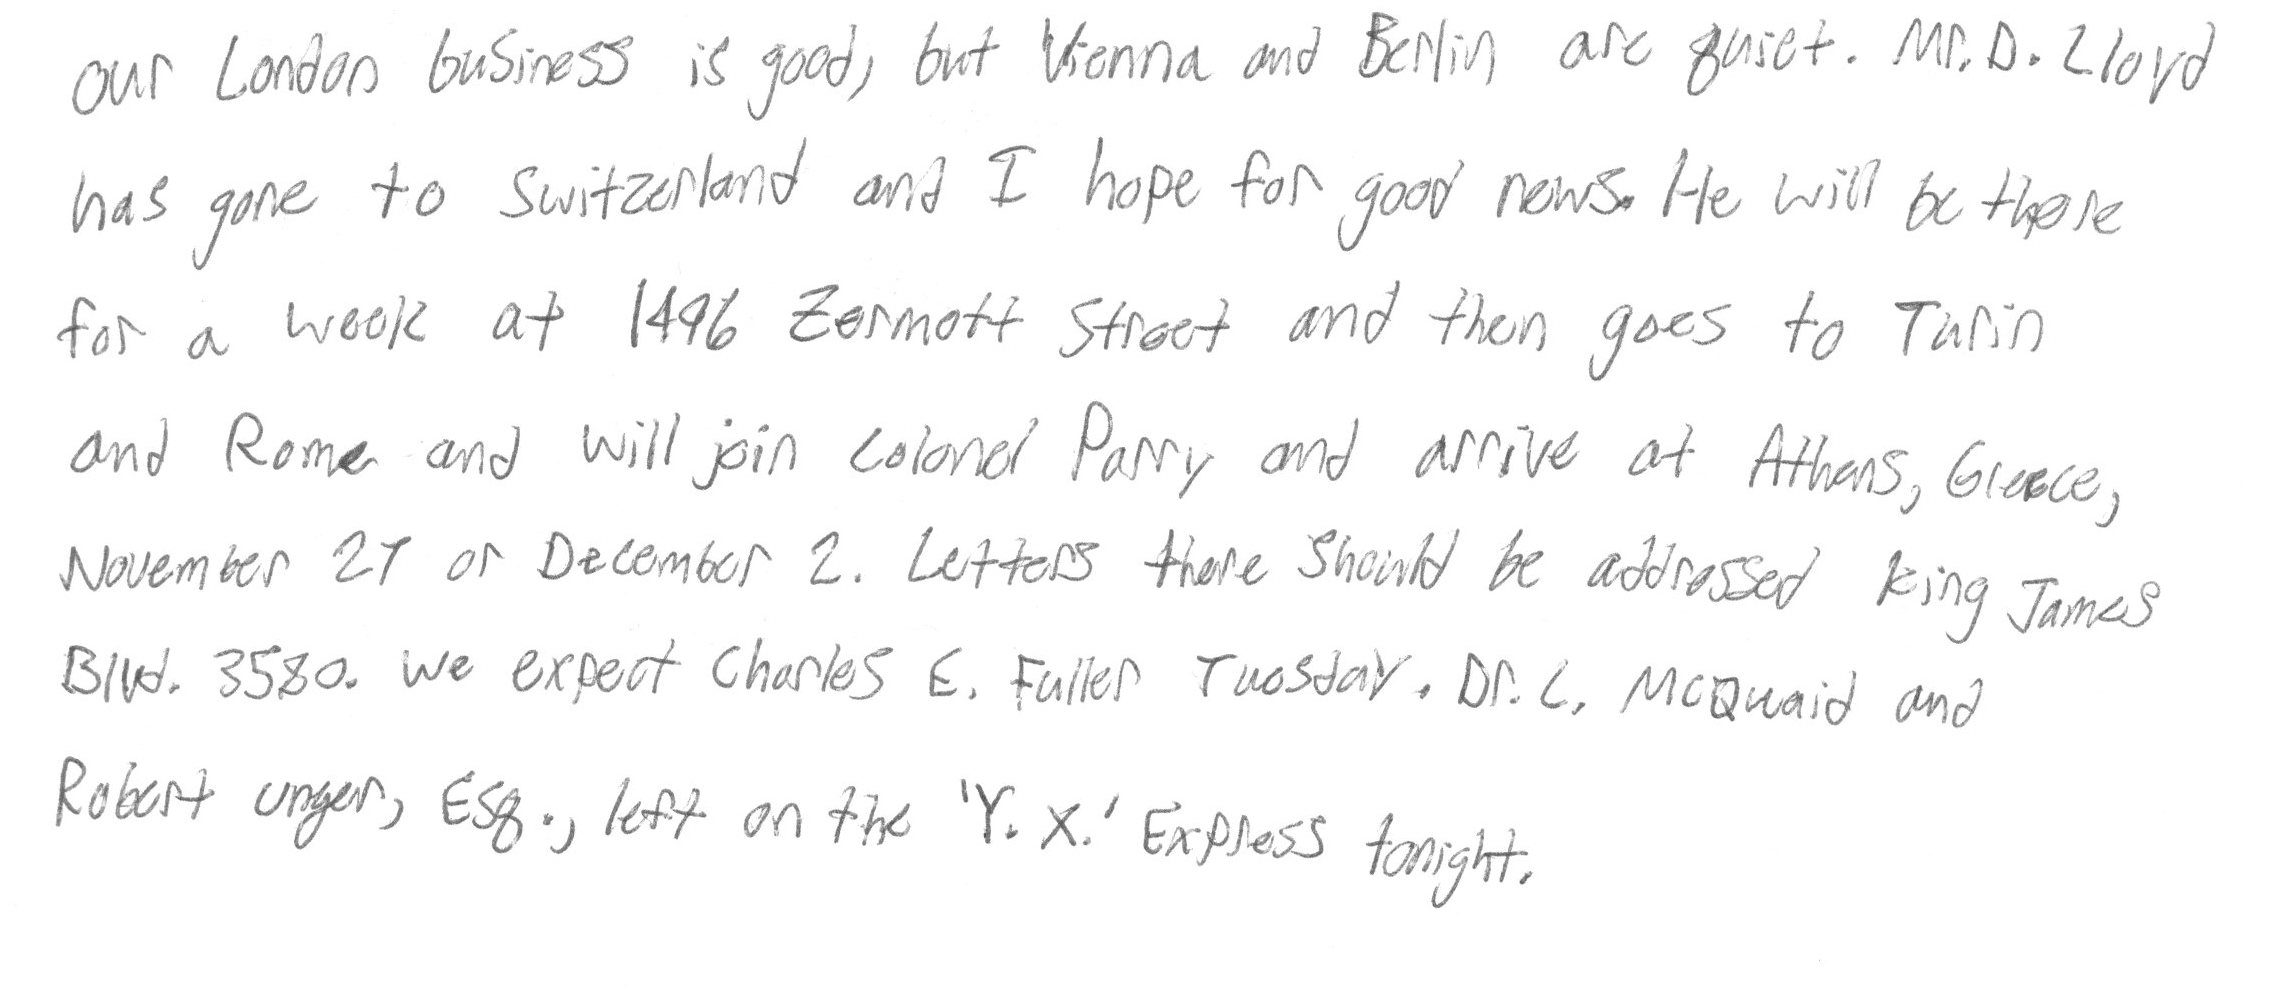 our London business is good, but Vienna and Berlin are quiet. Mr. D. Lloyd
has gone to Switzerland and I hope for good news. He will be there
for a week at 1496 Zermott Street and then goes to Turin
and Rome and will join Colonel Parry and arrive at Athens, Greece,
November 27 or December 2. Letters there should be addressed King James
Blvd. 3580. We expect Charles E. Fuller Tuesday. Dr. L. McQuaid and
Robert Unger, Esq., left on the 'Y. X.' Express tonight.